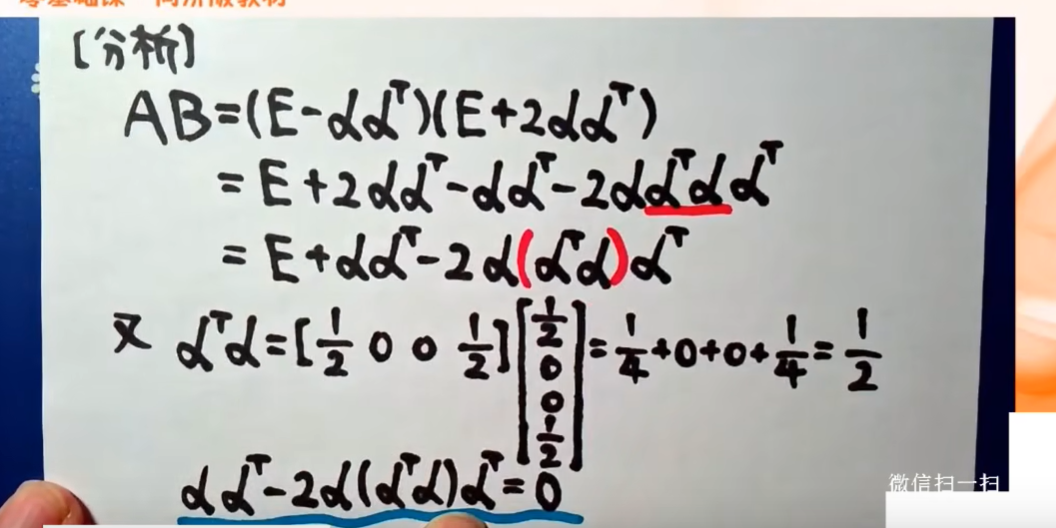 [分析]
AB=(E-αα^T)(E+2αα^T)
=E+2αα^T-αα^T-2αα^Tαα^T
=E+αα^T-2α(α^Tα)α^T
又 α^Tα=[1/2 0 0 1/2][1/2 0 0 1/2]=1/4+0+0+1/4=1/2
αα^T-2α(α^Tα)α^T=0
微信扫一扫